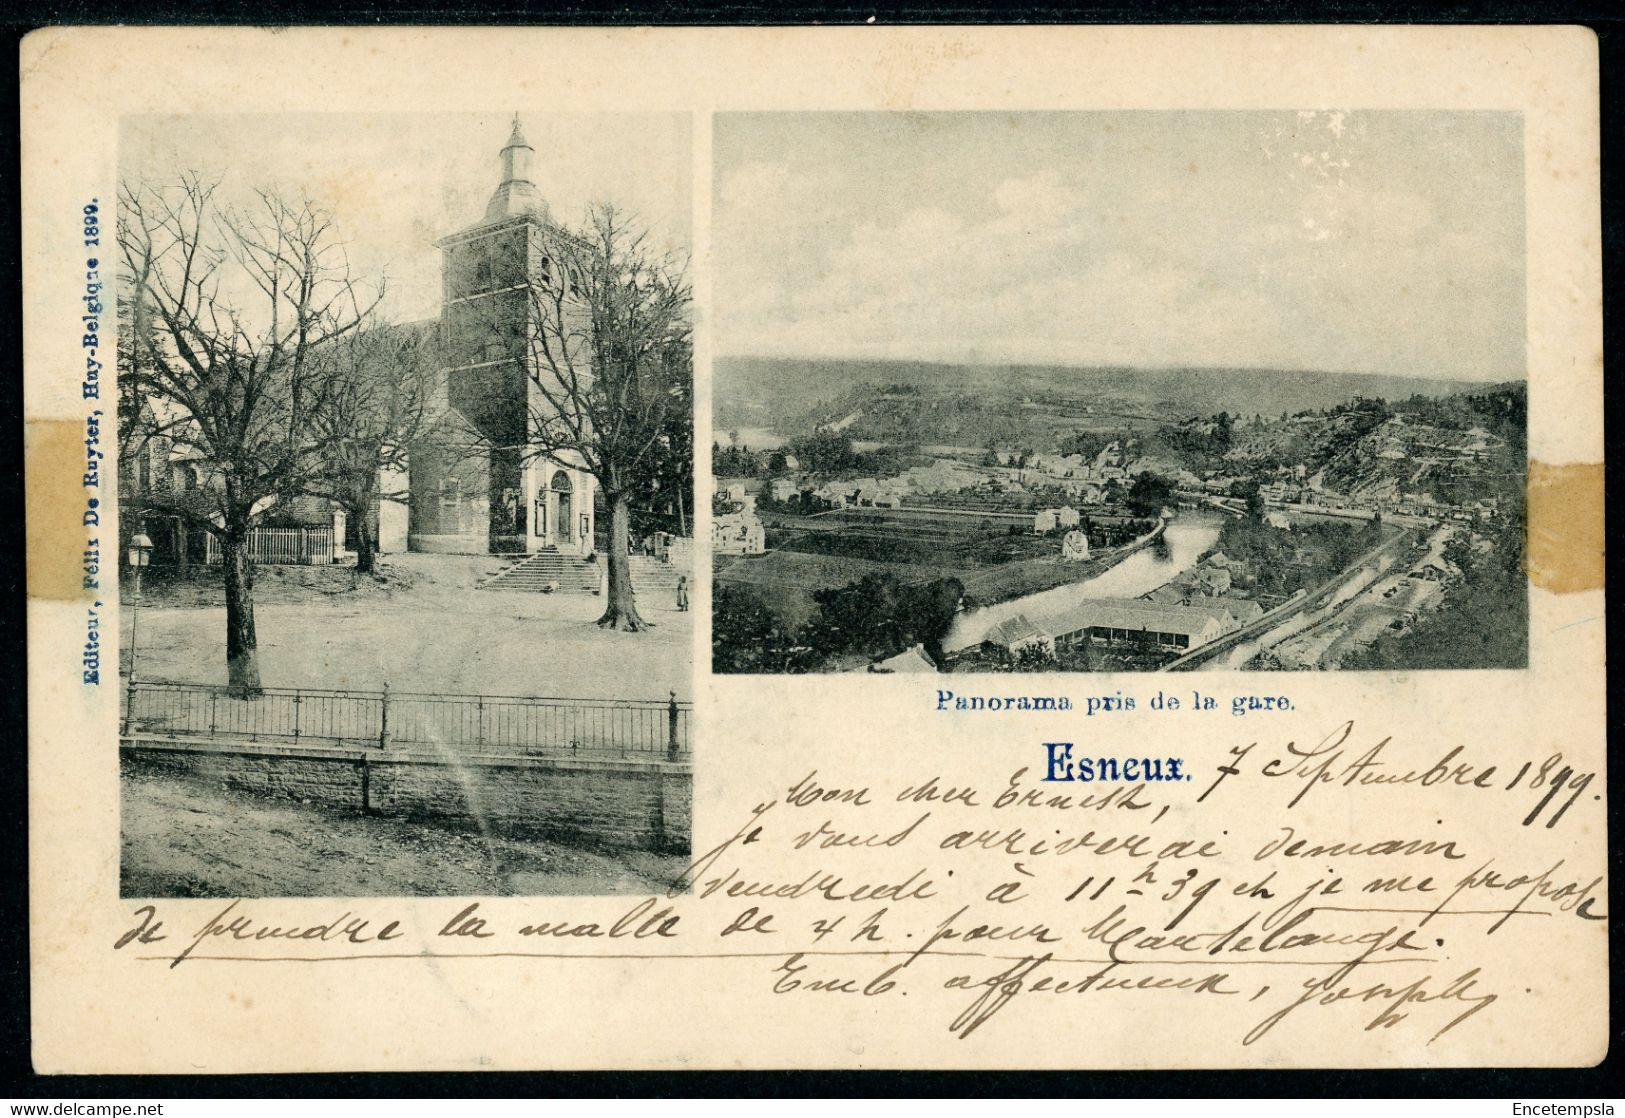 Editeur, Félix De Ruyter, Huy-Belgique 1899.
Panorama pris de la gare.
Esneux. 7 Septembre 1899.
Mon cher Ernest,
Je vous arriverai demain
vendredi à 11 h 39 et je me propose
de prendre la malle de 4 h. pour Martelange.
Emb. affectueux, Joseph
delcampe.net
Encetempsla